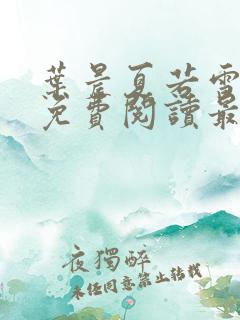 葉晨夏若雪
免費閱讀最
夜獨醉
未經同意禁止轉載